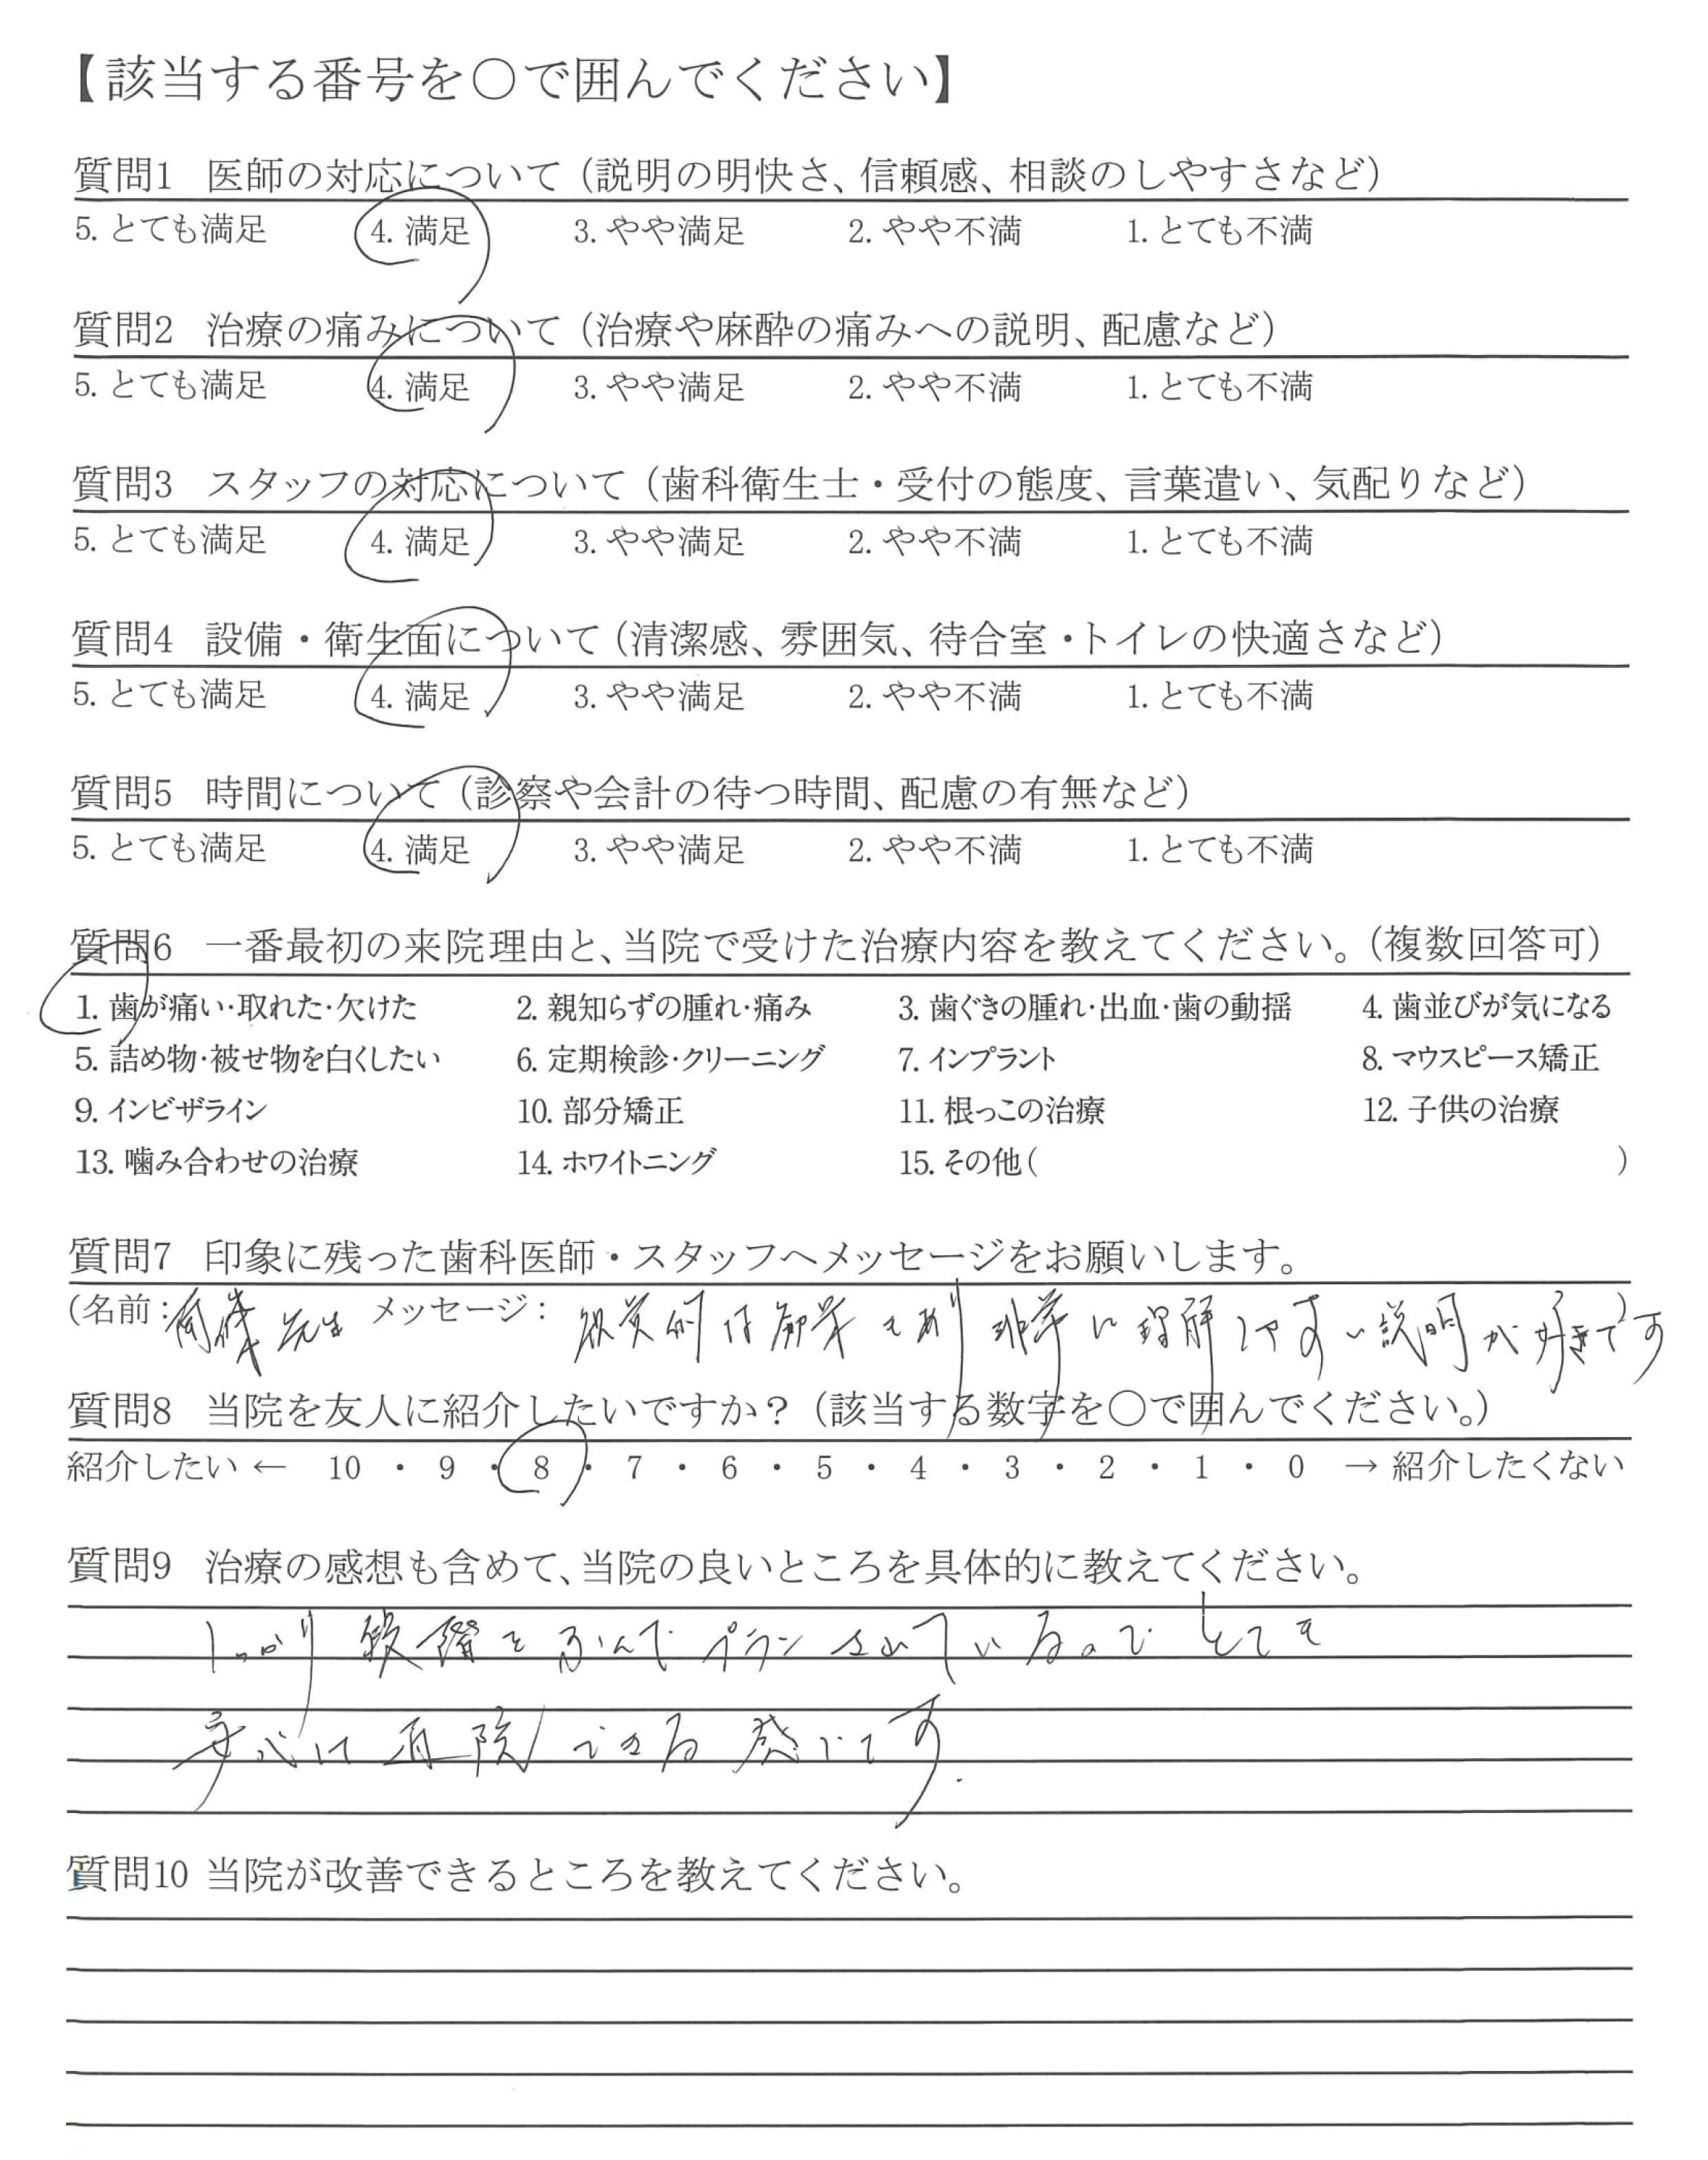 【該当する番号を○で囲んでください】
質問1 医師の対応について（説明の明快さ、信頼感、相談のしやすさなど）
5. とても満足 4. 満足 3. やや満足 2. やや不満 1. とても不満
質問2 治療の痛みについて（治療や麻酔の痛みへの説明、配慮など）
5. とても満足 4. 満足 3. やや満足 2. やや不満 1. とても不満
質問3 スタッフの対応について（歯科衛生士・受付の態度、言葉遣い、気配りなど）
5. とても満足 4. 満足 3. やや満足 2. やや不満 1. とても不満
質問4 設備・衛生面について（清潔感、雰囲気、待合室・トイレの快適さなど）
5. とても満足 4. 満足 3. やや満足 2. やや不満 1. とても不満
質問5 時間について（診察や会計の待つ時間、配慮の有無など）
5. とても満足 4. 満足 3. やや満足 2. やや不満 1. とても不満
質問6 一番最初の来院理由と、当院で受けた治療内容を教えてください。（複数回答可）
1. 歯が痛い・取れた・欠けた 2. 親知らずの腫れ・痛み 3. 歯ぐきの腫れ・出血・歯の動揺 4. 歯並びが気になる
5. 詰め物・被せ物を白くしたい 6. 定期検診・クリーニング 7. インプラント 8. マウスピース矯正
9. インビザライン 10. 部分矯正 11. 根っこの治療 12. 子供の治療
13. 噛み合わせの治療 14. ホワイトニング 15. その他（ ）
質問7 印象に残った歯科医師・スタッフへメッセージをお願いします。
（名前： 先生 メッセージ： 視覚的な もあり 非常に理解しやすい説明が好きです）
質問8 当院を友人に紹介したいですか？（該当する数字を○で囲んでください。）
紹介したい ← 10 ・ 9 ・ 8 ・ 7 ・ 6 ・ 5 ・ 4 ・ 3 ・ 2 ・ 1 ・ 0 → 紹介したくない
質問9 治療の感想も含めて、当院の良いところを具体的に教えてください。
しっかり段階をふんでプランされているのでとても
安心に 院できる感じです.
質問10 当院が改善できるところを教えてください。